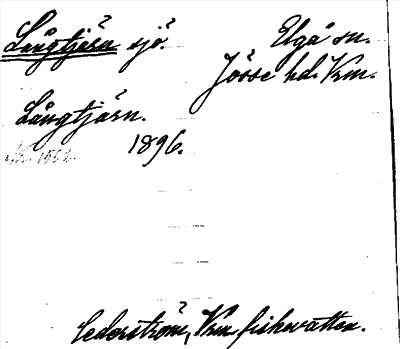 Långtjärn sjö.
Elgå sn.
Jösse hd. Vrm.
Långtjärn.
1896.
Cederström, Vrm. fiskevatten.